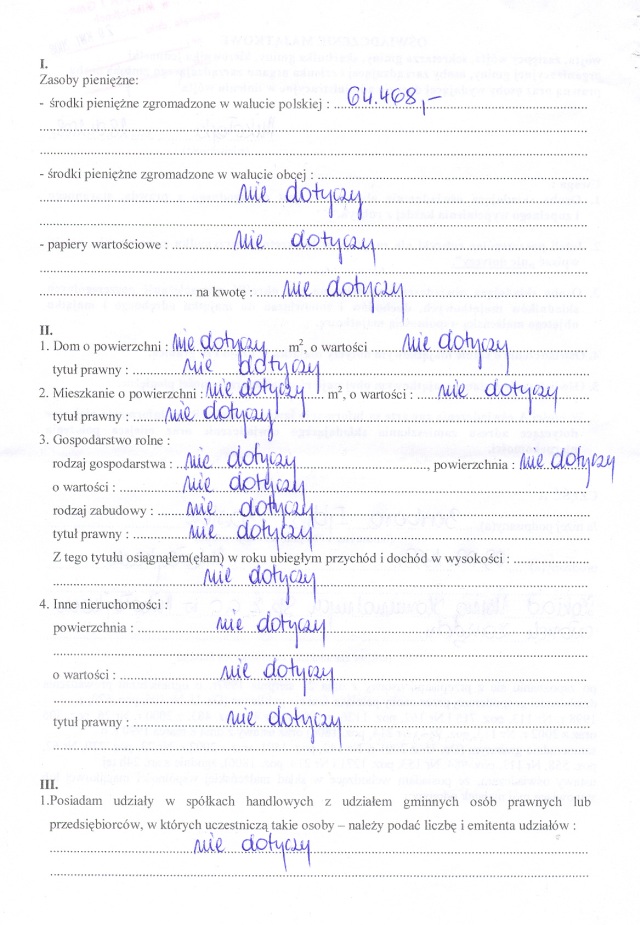 I.
Zasoby pieniężne:
- środki pieniężne zgromadzone w walucie polskiej : 64.468,-
- środki pieniężne zgromadzone w walucie obcej :
nie dotyczy
- papiery wartościowe : nie dotyczy
na kwotę : nie dotyczy
II.
1. Dom o powierzchni : nie dotyczy m², o wartości nie dotyczy
tytuł prawny : nie dotyczy
2. Mieszkanie o powierzchni : nie dotyczy m², o wartości : nie dotyczy
tytuł prawny : nie dotyczy
3. Gospodarstwo rolne :
rodzaj gospodarstwa : nie dotyczy, powierzchnia : nie dotyczy
o wartości : nie dotyczy
rodzaj zabudowy : nie dotyczy
tytuł prawny : nie dotyczy
Z tego tytułu osiągnąłem(ęłam) w roku ubiegłym przychód i dochód w wysokości :
nie dotyczy
4. Inne nieruchomości :
powierzchnia : nie dotyczy
o wartości : nie dotyczy
tytuł prawny : nie dotyczy
III.
1.Posiadam udziały w spółkach handlowych z udziałem gminnych osób prawnych lub
przedsiębiorców, w których uczestniczą takie osoby – należy podać liczbę i emitenta udziałów :
nie dotyczy